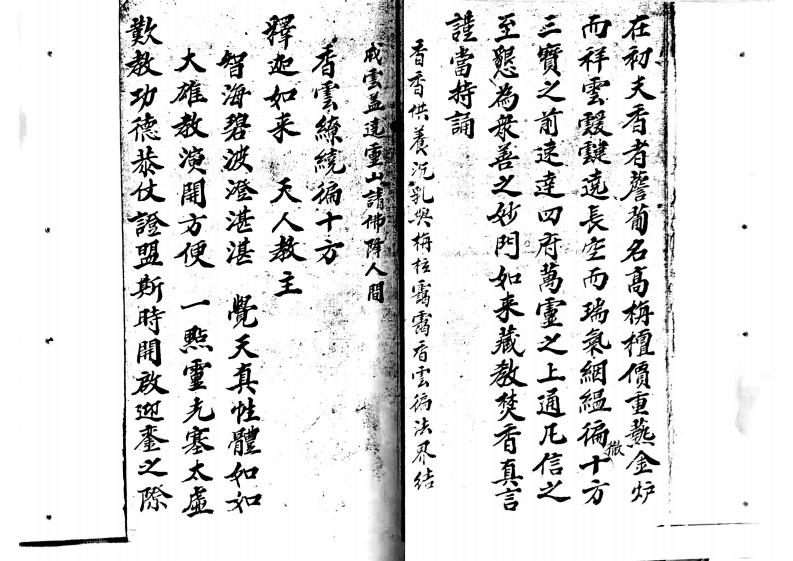 在初夫香者薝蔔名高栴檀價重爇金炉
而祥雲靉靆遶長空而瑞氣絪縕徧十方
徹
三寶之前速達四府萬靈之上通凡信之
至懇為衆善之妙門如来藏教焚香真言
謹當持誦
香香供養沉乳與栴檀靄靄香雲徧法界結
成雲盖達靈山請佛降人間
香雲繚繞徧十方
釋迦如来 天人教主
智海碧波澄湛湛 覺天真性體如如
大雄教演開方便 一點靈光塞太虛
歎教功德恭仗證盟斯時開啟迎鑾之際